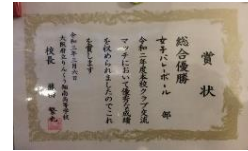 賞状
総合優勝
女子バレーボール 部
令和二年度本校クラブ交流
マッチにおいて優秀な成績
を収められましたのでこれ
を賞します
令和三年三月六日
大阪府立りんくう翔南高等学校
校長